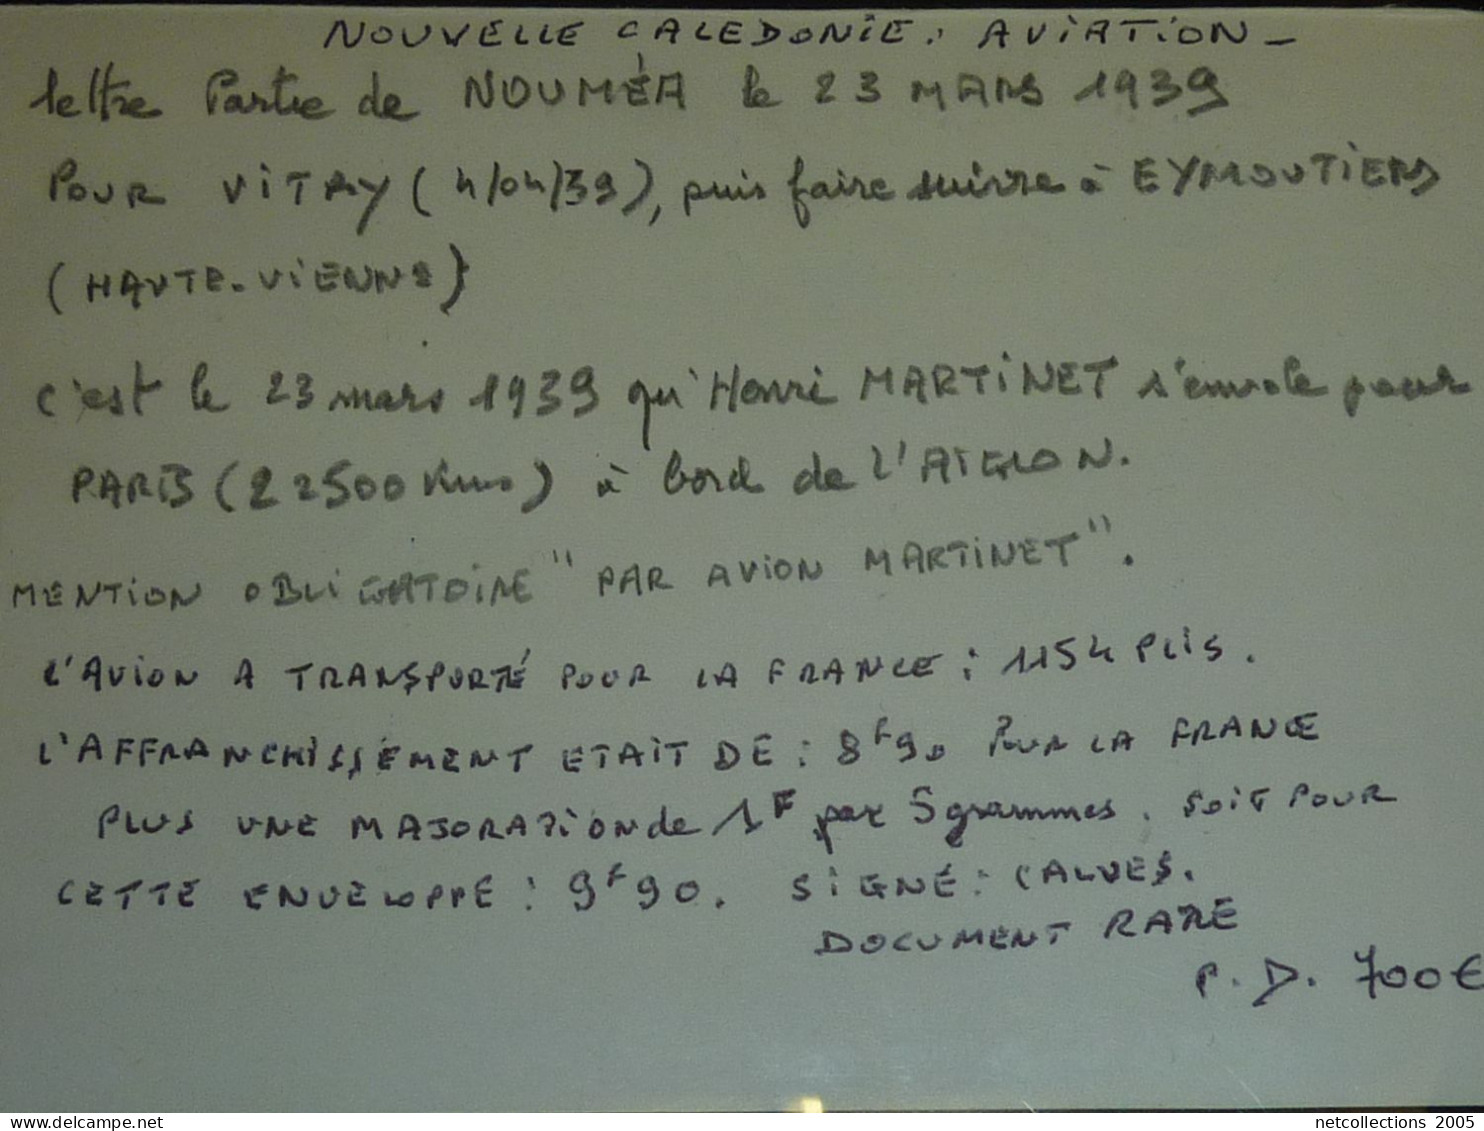 NOUVELLE CALEDONIE. AVIATION_
lettre Partie de NOUMÉA le 23 MARS 1939
POUR VITRY (4/04/39), puis faire suivre à EYMOUTIERS
(HAUTE-VIENNE)
c'est le 23 mars 1939 qu'Henri MARTINET s'envole pour
PARIS (22500 Kms) à bord de L'AIGLON.
MENTION OBLIGATOIRE "PAR AVION MARTINET".
L'AVION A TRANSPORTÉ POUR LA FRANCE : 1154 PLIS.
L'AFFRANCHISSEMENT ETAIT DE : 8F90 POUR LA FRANCE
PLUS UNE MAJORATION de 1F par 5 grammes. SOIT POUR
CETTE ENVELOPPE : 9F90. SIGNÉ : CALVES.
DOCUMENT RARE
P.D. 700€
netcollections 2005